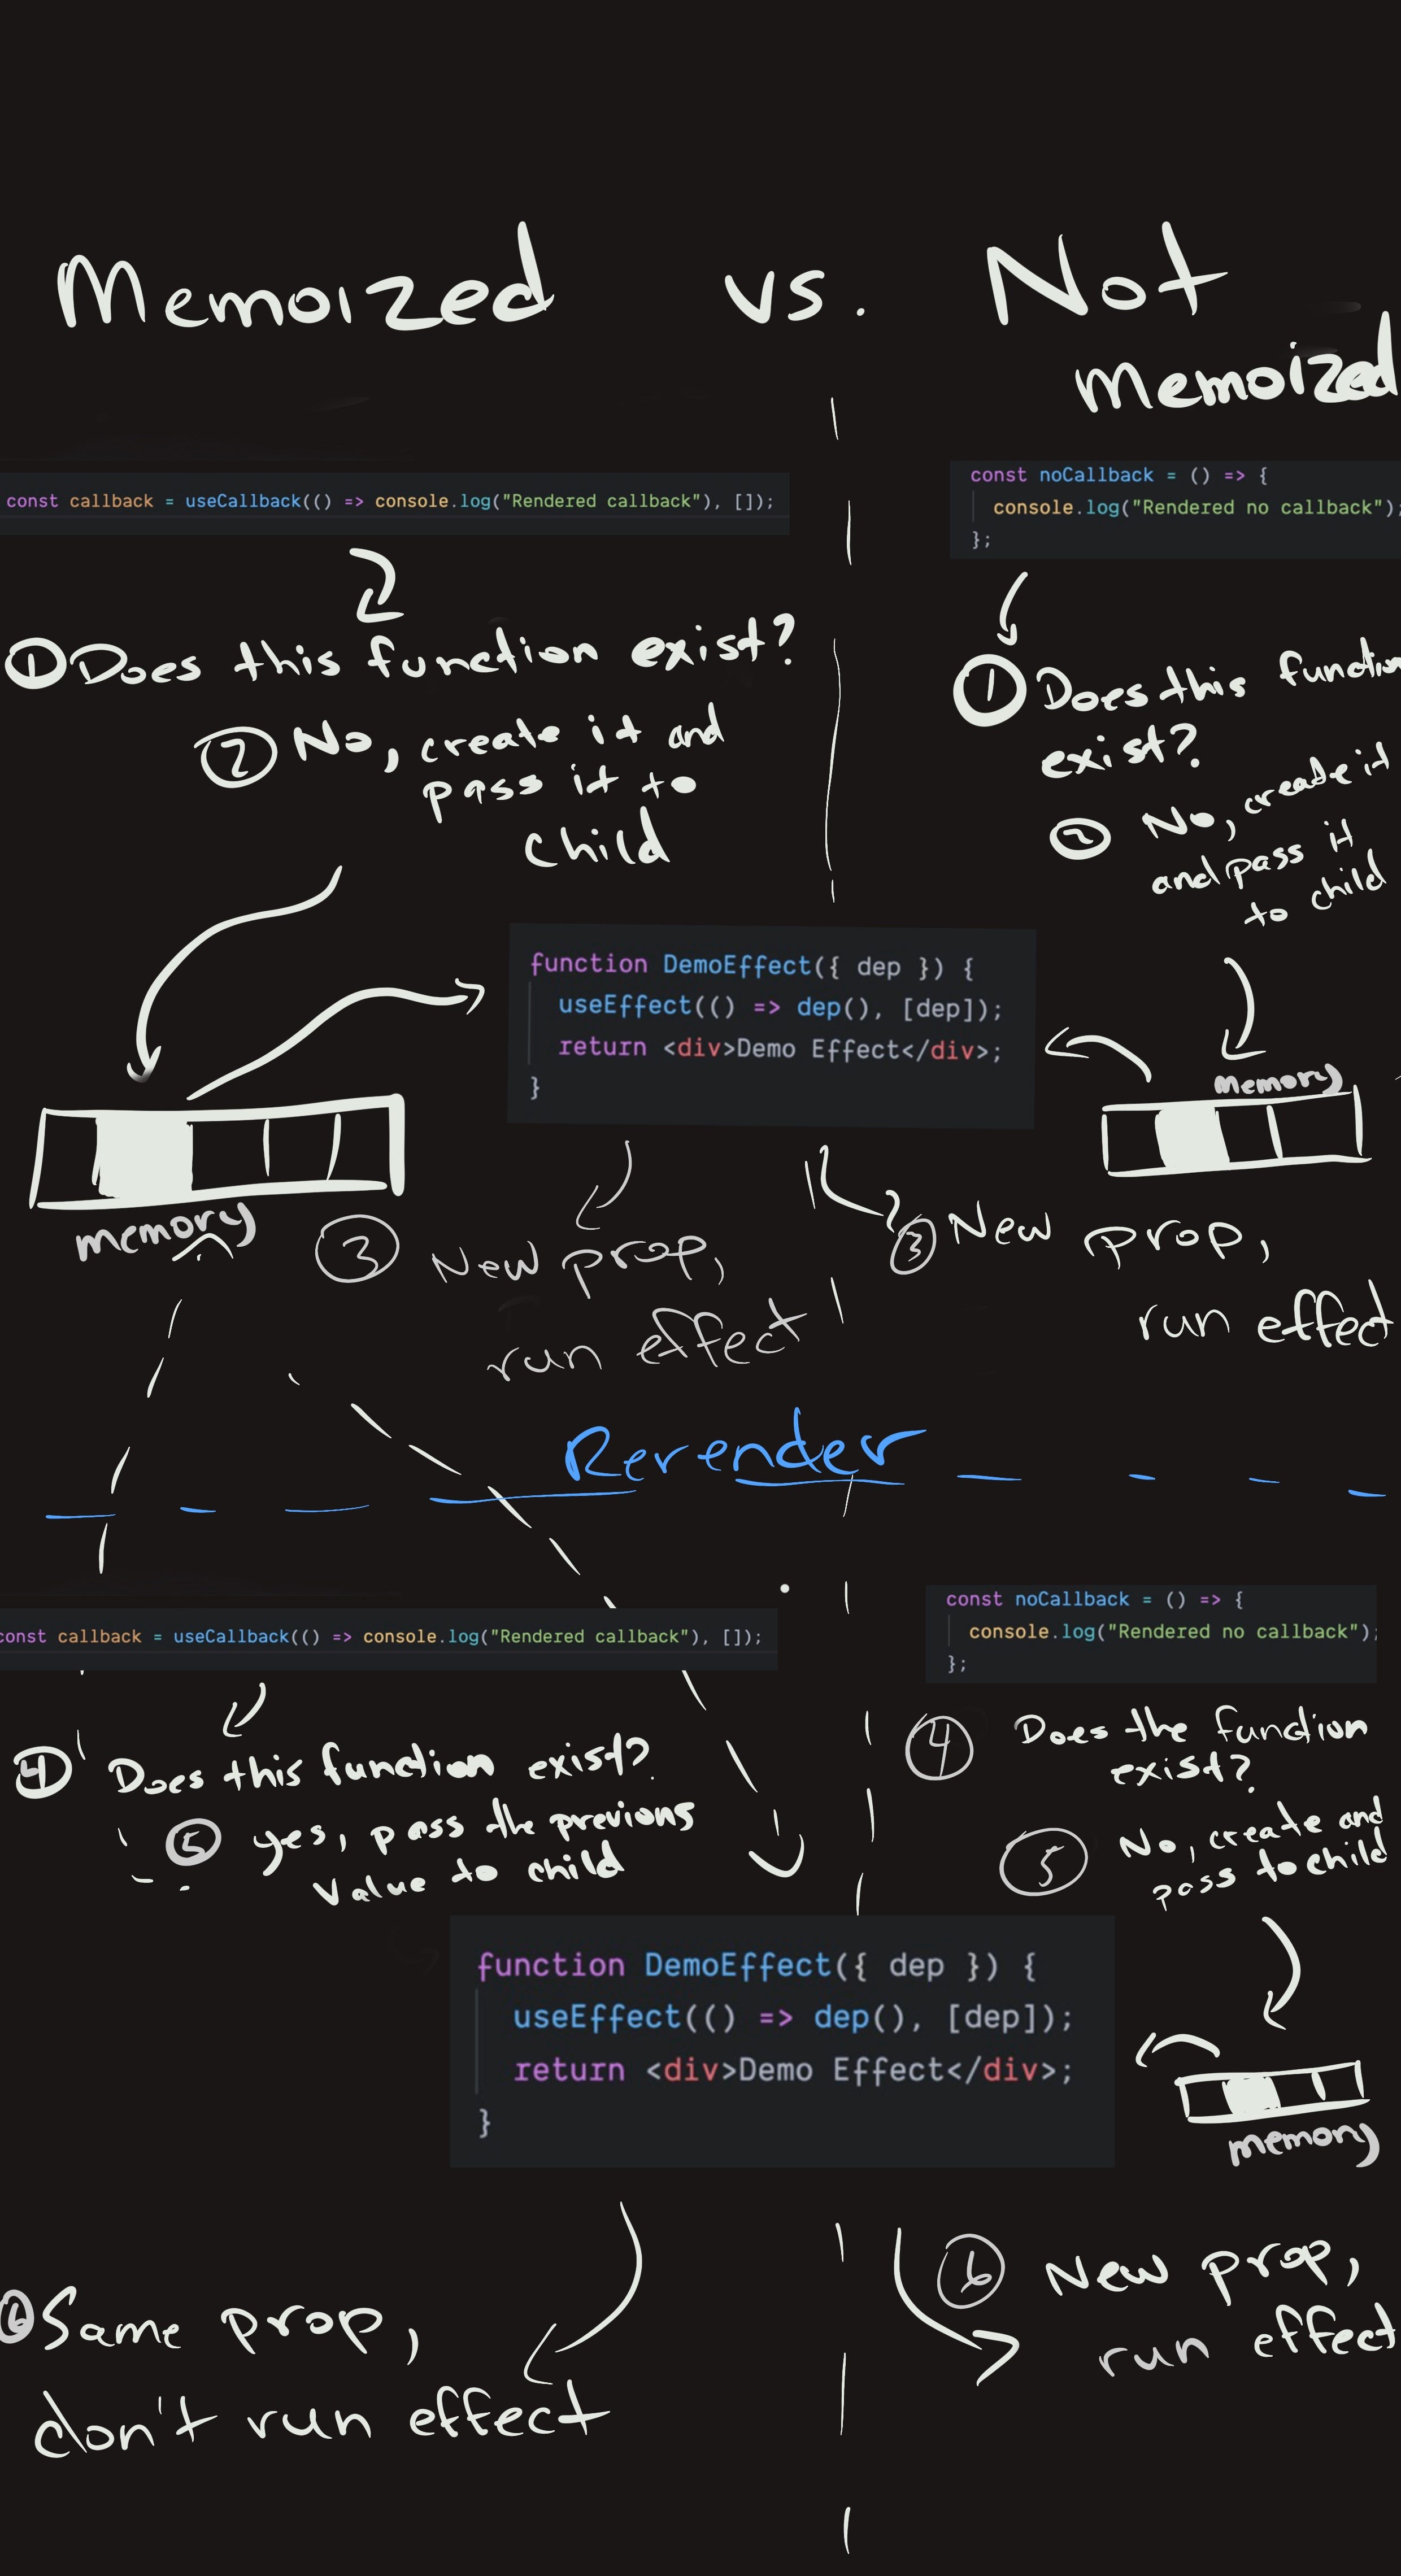 Memoized vs. Not
memoized
const callback = useCallback(() => console.log("Rendered callback"), []);
① Does this function exist?
② No, create it and
pass it to
child
const noCallback = () => {
console.log("Rendered no callback");
};
① Does this function
exist?
② No, create it
and pass it
to child
function DemoEffect({ dep }) {
useEffect(() => dep(), [dep]);
return <div>Demo Effect</div>;
}
memory
memory
③ New prop,
run effect
③ New prop,
run effect
Rerender
const callback = useCallback(() => console.log("Rendered callback"), []);
④ Does this function exist?
⑤ yes, pass the previous
value to child
const noCallback = () => {
console.log("Rendered no callback");
};
④ Does the function
exist?
⑤ No, create and
pass to child
function DemoEffect({ dep }) {
useEffect(() => dep(), [dep]);
return <div>Demo Effect</div>;
}
memory
⑥ Same prop,
don't run effect
⑥ New prop,
run effect